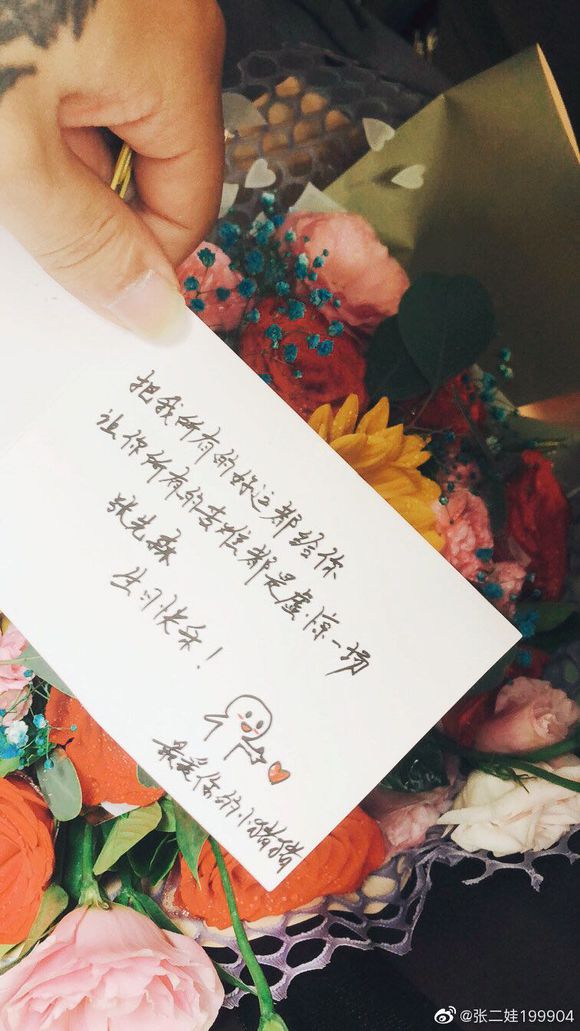 把我所有的好运都给你
让你所有的苦难都是虚惊一场
张先森
生日快乐！
最爱你的小猪猪
@张二娃199904